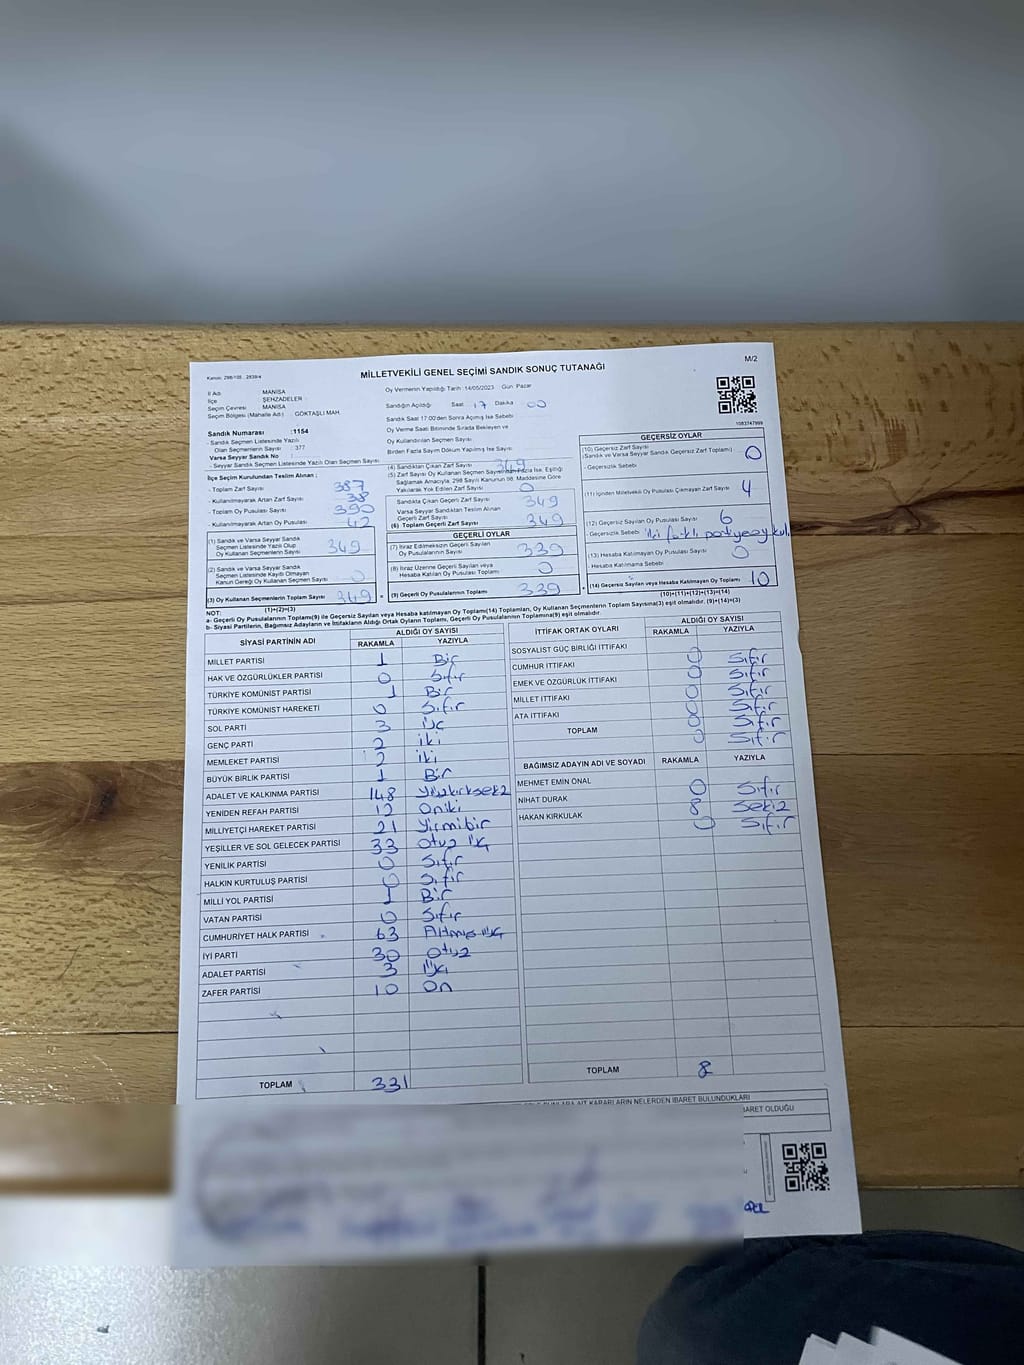 Kanun: 298/105 , 2839/4
M/2
MİLLETVEKİLİ GENEL SEÇİMİ SANDIK SONUÇ TUTANAĞI
İl Adı : MANİSA
İlçe : ŞEHZADELER
Seçim Çevresi : MANİSA
Seçim Bölgesi (Mahalle Adı) : GÖKTAŞLI MAH.
Sandık Numarası :1154
- Sandık Seçmen Listesinde Yazılı
Olan Seçmenlerin Sayısı : 377
Varsa Seyyar Sandık No :
- Seyyar Sandık Seçmen Listesinde Yazılı Olan Seçmen Sayısı
İlçe Seçim Kurulundan Teslim Alınan ;
- Toplam Zarf Sayısı 387
- Kullanılmayarak Artan Zarf Sayısı 38
- Toplam Oy Pusulası Sayısı 390
- Kullanılmayarak Artan Oy Pusulası 42
(1) Sandık ve Varsa Seyyar Sandık
Seçmen Listesinde Yazılı Olup
Oy Kullanan Seçmenlerin Sayısı 349
(2) Sandık ve Varsa Seyyar Sandık
Seçmen Listesinde Kaydı Olmayan
Kanun Gereği Oy Kullanan Seçmen Sayısı 0
(3) Oy Kullanan Seçmenlerin Toplam Sayısı 349
(1)+(2)=(3)
Oy Vermenin Yapıldığı Tarih :14/05/2023 Gün: Pazar
Sandığın Açıldığı Saat 17 Dakika 00
Sandık Saat 17:00'den Sonra Açılmış İse Sebebi
Oy Verme Saati Bitiminde Sırada Bekleyen ve
Oy Kullandırılan Seçmen Sayısı
Birden Fazla Sayım Döküm Yapılmış İse Sayısı
(4) Sandıktan Çıkan Zarf Sayısı 349
(5) Zarf Sayısı Oy Kullanan Seçmen Sayısından Fazla İse, Eşitliği
Sağlamak Amacıyla, 298 Sayılı Kanunun 98. Maddesine Göre
Yakılarak Yok Edilen Zarf Sayısı 0
Sandıkta Çıkan Geçerli Zarf Sayısı 349
Varsa Seyyar Sandıktan Teslim Alınan
Geçerli Zarf Sayısı
(6) Toplam Geçerli Zarf Sayısı 349
GEÇERLİ OYLAR
(7) İtiraz Edilmeksizin Geçerli Sayılan
Oy Pusulalarının Sayısı 339
(8) İtiraz Üzerine Geçerli Sayılan veya
Hesaba Katılan Oy Pusulası Toplamı 0
(9) Geçerli Oy Pusulalarının Toplamı 339
1083747999
GEÇERSİZ OYLAR
(10) Geçersiz Zarf Sayısı
(Sandık ve Varsa Seyyar Sandık Geçersiz Zarf Toplamı) 0
- Geçersizlik Sebebi
(11) İçinden Milletvekili Oy Pusulası Çıkmayan Zarf Sayısı 4
(12) Geçersiz Sayılan Oy Pusulası Sayısı 6
- Geçersizlik Sebebi iki farklı partiye oy kul.
(13) Hesaba Katılmayan Oy Pusulası Sayısı 0
- Hesaba Katılmama Sebebi
(14) Geçersiz Sayılan veya Hesaba Katılmayan Oy Toplamı 10
(10)+(11)+(12)+(13)=(14)
NOT:
a- Geçerli Oy Pusulalarının Toplamı(9) ile Geçersiz Sayılan veya Hesaba katılmayan Oy Toplamı(14) Toplamları, Oy Kullanan Seçmenlerin Toplam Sayısına(3) eşit olmalıdır. (9)+(14)=(3)
b- Siyasi Partilerin, Bağımsız Adayların ve İttifakların Aldığı Ortak Oyların Toplamı, Geçerli Oy Pusulalarının Toplamına(9) eşit olmalıdır.
SİYASİ PARTİNİN ADI ALDIĞI OY SAYISI
RAKAMLA YAZIYLA
MİLLET PARTİSİ 1 Bir
HAK VE ÖZGÜRLÜKLER PARTİSİ 0 Sıfır
TÜRKİYE KOMÜNİST PARTİSİ 1 Bir
TÜRKİYE KOMÜNİST HAREKETİ 0 Sıfır
SOL PARTİ 3 üç
GENÇ PARTİ 2 iki
MEMLEKET PARTİSİ 2 iki
BÜYÜK BİRLİK PARTİSİ 1 Bir
ADALET VE KALKINMA PARTİSİ 148 Yüzkırksekiz
YENİDEN REFAH PARTİSİ 12 Oniki
MİLLİYETÇİ HAREKET PARTİSİ 21 Yirmibir
YEŞİLLER VE SOL GELECEK PARTİSİ 33 Otuz üç
YENİLİK PARTİSİ 0 Sıfır
HALKIN KURTULUŞ PARTİSİ 0 Sıfır
MİLLİ YOL PARTİSİ 1 Bir
VATAN PARTİSİ 0 Sıfır
CUMHURİYET HALK PARTİSİ 63 Altmış üç
İYİ PARTİ 30 Otuz
ADALET PARTİSİ 3 üç
ZAFER PARTİSİ 10 On
TOPLAM 331
İTTİFAK ORTAK OYLARI ALDIĞI OY SAYISI
RAKAMLA YAZIYLA
SOSYALİST GÜÇ BİRLİĞİ İTTİFAKI 0 Sıfır
CUMHUR İTTİFAKI 0 Sıfır
EMEK VE ÖZGÜRLÜK İTTİFAKI 0 Sıfır
MİLLET İTTİFAKI 0 Sıfır
ATA İTTİFAKI 0 Sıfır
TOPLAM 0 Sıfır
BAĞIMSIZ ADAYIN ADI VE SOYADI RAKAMLA YAZIYLA
MEHMET EMİN ÖNAL 0 Sıfır
NİHAT DURAK 8 Sekiz
HAKAN KIRKULAK 0 Sıfır
TOPLAM 8
KARARLARIN NELERDEN İBARET BULUNDUKLARI
İBARET OLDUĞU